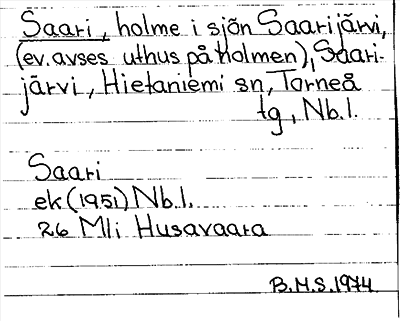 Saari, holme i sjön Saarijärvi,
(ev. avses uthus på holmen), Saari-
järvi, Hietaniemi sn, Torneå
tg, Nb.l.
Saari
ek (1951) Nb.l.
26 Mli Husavaara
B.M.S. 1974